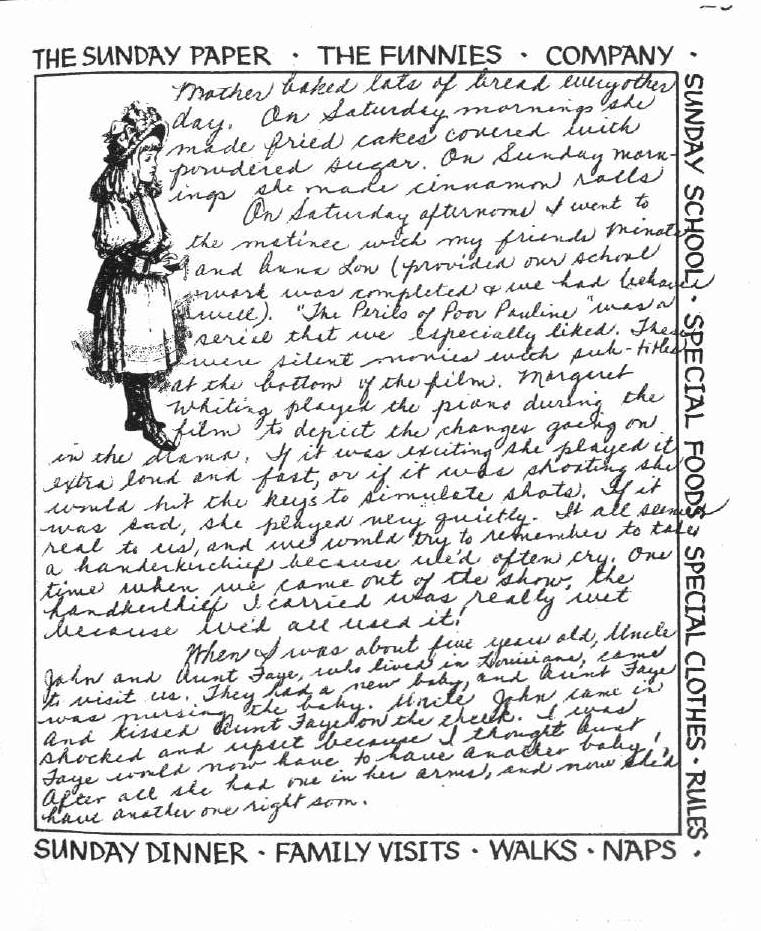 THE SUNDAY PAPER · THE FUNNIES · COMPANY ·
Mother baked lots of bread everyother
day. On Saturday mornings she
made fried cakes covered with
powdered sugar. On Sunday morn-
ings she made cinnamon rolls
On Saturday afternoons I went to
the matinee with my friends
and Anna Lou (provided our school
work was completed & we had behaved
well). "The Perils of Poor Pauline" was a
serial that we especially liked. These
were silent movies with sub-titles
at the bottom of the film. Margaret
Whiting played the piano during the
film to depict the changes going on
in the drama. If it was exciting she played it
extra loud and fast, or if it was shooting she
would hit the keys to simulate shots. If it
was sad, she played very quietly. It all seemed
real to us, and we would try to remember to take
a handerkerchief because we'd often cry. One
time when we came out of the show, the
handkerchief I carried was really wet
because we'd all used it!
When I was about five years old, Uncle
John and Aunt Faye, who lived in Louisiana, came
to visit us. They had a new baby, and Aunt Faye
was nursing the baby. Uncle John came in
and kissed Aunt Faye on the cheek. I was
shocked and upset because I thought Aunt
Faye would now have to have another baby!
After all she had one in her arms, and now she'd
have another one right soon.
SUNDAY SCHOOL · SPECIAL FOODS · SPECIAL CLOTHES · RULES ·
SUNDAY DINNER · FAMILY VISITS · WALKS · NAPS ·